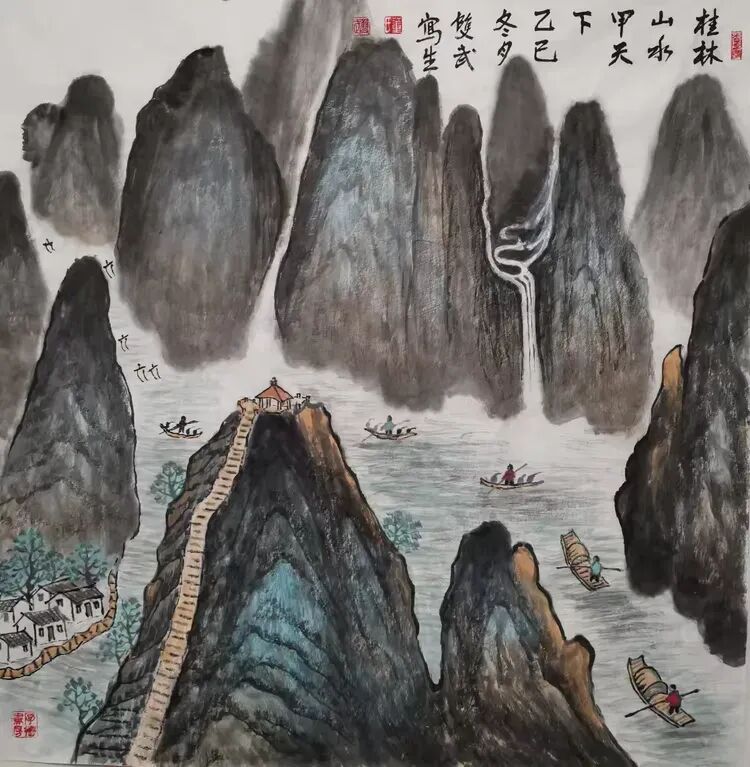 桂林
山水
甲天
下
乙巳
冬夕
雙武
寫生